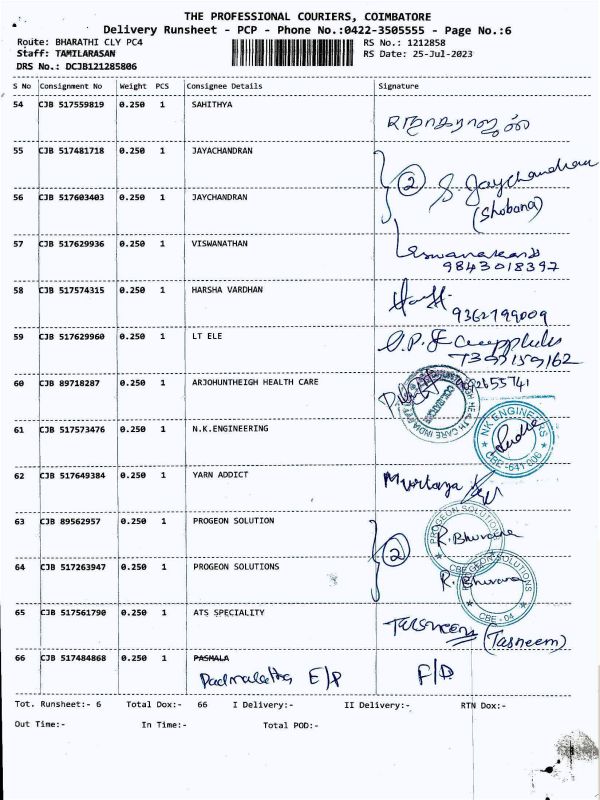 THE PROFESSIONAL COURIERS, COIMBATORE
Delivery Runsheet - PCP - Phone No.:0422-3505555 - Page No.:6
Route: BHARATHI CLY PC4 RS No.: 1212858
Staff: TAMILARASAN RS Date: 25-Jul-2023
DRS No.: DCJB121285806
S No Consignment No Weight PCS Consignee Details Signature
54 CJB 517559819 0.250 1 SAHITHYA
55 CJB 517481718 0.250 1 JAYACHANDRAN
2 S. Jaychandran
56 CJB 517603403 0.250 1 JAYCHANDRAN
(Shobana)
57 CJB 517629936 0.250 1 VISWANATHAN
9843018397
58 CJB 517574315 0.250 1 HARSHA VARDHAN
9362799009
59 CJB 517629960 0.250 1 LT ELE
60 CJB 89718287 0.250 1 ARJOHUNTHEIGH HEALTH CARE
61 CJB 517573476 0.250 1 N.K.ENGINEERING
NK ENGINEERS
CBE-641 006
62 CJB 517649384 0.250 1 YARN ADDICT Murtaza
63 CJB 89562957 0.250 1 PROGEON SOLUTION
PROGEON SOLUTIONS
R. Bhuvana
2
64 CJB 517263947 0.250 1 PROGEON SOLUTIONS
PROGEON SOLUTIONS
R. Bhuvana
CBE - 04
65 CJB 517561790 0.250 1 ATS SPECIALITY
Tasneem (Tasneem)
66 CJB 517484868 0.250 1 PASMALA
Padmalatha E/P F/D
Tot. Runsheet:- 6 Total Dox:- 66 I Delivery:- II Delivery:- RTN Dox:-
Out Time:- In Time:- Total POD:-